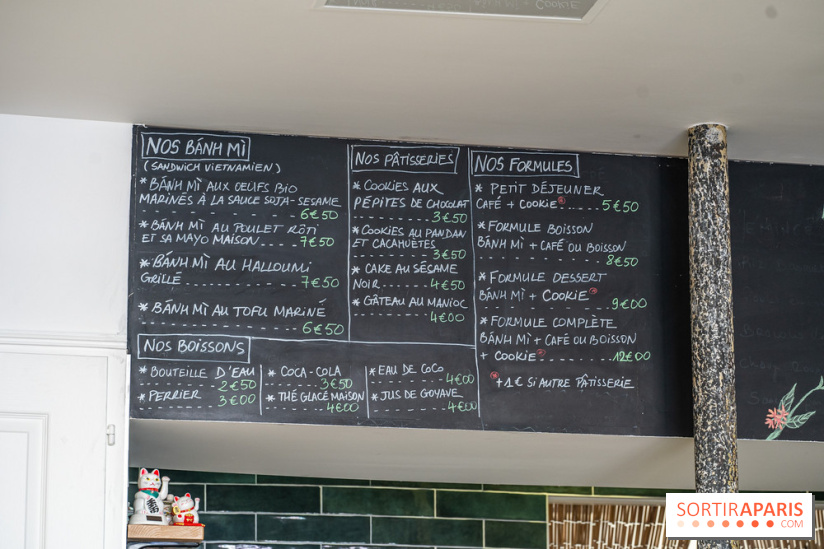 COOKIE
NOS BÁNH MÌ
(SANDWICH VIETNAMIEN)
* BÁNH MÌ AUX OEUFS BIO
MARINÉS À LA SAUCE SOJA-SESAME
6€50
* BÁNH MÌ AU POULET RÔTI
ET SA MAYO MAISON 7€50
* BÁNH MÌ AU HALLOUMI
GRILLÉ 7€50
* BÁNH MÌ AU TOFU MARINÉ
6€50
NOS PÂTISSERIES
* COOKIES AUX
PÉPITES DE CHOCOLAT
3€50
* COOKIES AU PANDAN
ET CACAHUÈTES
3€50
* CAKE AU SÉSAME
NOIR 4€50
* GÂTEAU AU MANIOC
4€00
NOS FORMULES
* PETIT DÉJEUNER
CAFÉ + COOKIE* 5€50
* FORMULE BOISSON
BÁNH MÌ + CAFÉ OU BOISSON
8€50
* FORMULE DESSERT
BÁNH MÌ + COOKIE*
9€00
* FORMULE COMPLÈTE
BÁNH MÌ + CAFÉ OU BOISSON
+ COOKIE* 12€00
* +1€ SI AUTRE PÂTISSERIE
NOS BOISSONS
* BOUTEILLE D'EAU
2€50
* PERRIER 3€00
* COCA-COLA
3€50
* THÉ GLACÉ MAISON
4€00
* EAU DE COCO
4€00
* JUS DE GOYAVE
4€00
SORTIRAPARIS
.COM